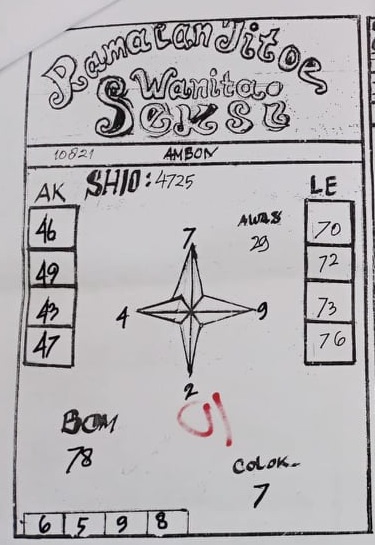 Ramalan Jitoe
Wanita
Seksi
10821 AMBON
AK SHIO: 4725 LE
46 7 AWAS 70
49 29 72
43 4 9 73
47 76
2
BOM
78
COLOK
7
6 5 9 8